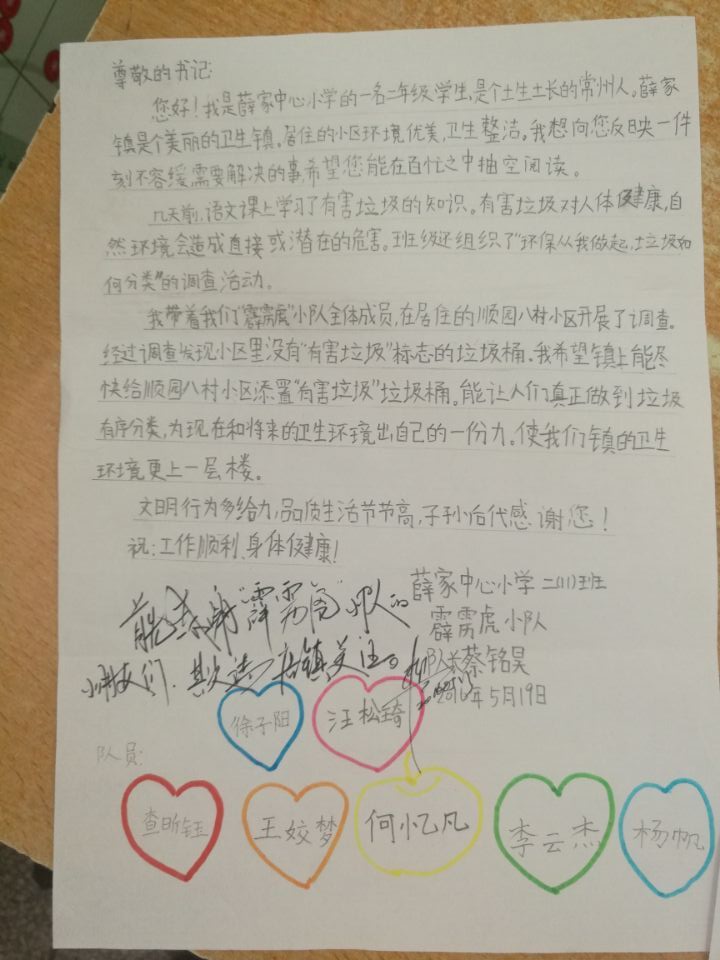 尊敬的书记:
您好！我是薛家中心小学的一名二年级学生，是个土生土长的常州人。薛家
镇是个美丽的卫生镇。居住的小区环境优美，卫生整洁。我想向您反映一件
刻不容缓需要解决的事，希望您能在百忙之中抽空阅读。
几天前，语文课上学习了有害垃圾的知识。有害垃圾对人体健康，自
然环境会造成直接或潜在的危害。班级还组织了“环保从我做起，垃圾如
何分类”的调查活动。
我带着我们“霹雳虎”小队全体成员，在居住的顺园八村小区开展了调查。
经过调查发现小区里没有“有害垃圾”标志的垃圾桶。我希望镇上能尽
快给顺园八村小区添置“有害垃圾”垃圾桶。能让人们真正做到垃圾
有序分类，为现在和将来的卫生环境出自己的一份力。使我们镇的卫生
环境更上一层楼。
文明行为多给力，品质生活节节高，子孙后代感谢您！
祝：工作顺利、身体健康！
薛家中心小学 二(11)班
霹雳虎小队
队长蔡铭昊
2016年5月19日
“霹雳虎”小队的
小朋友们，
徐子阳
汪松琦
队员:
查昕钰
王姣梦
何忆凡
李云杰
杨帆